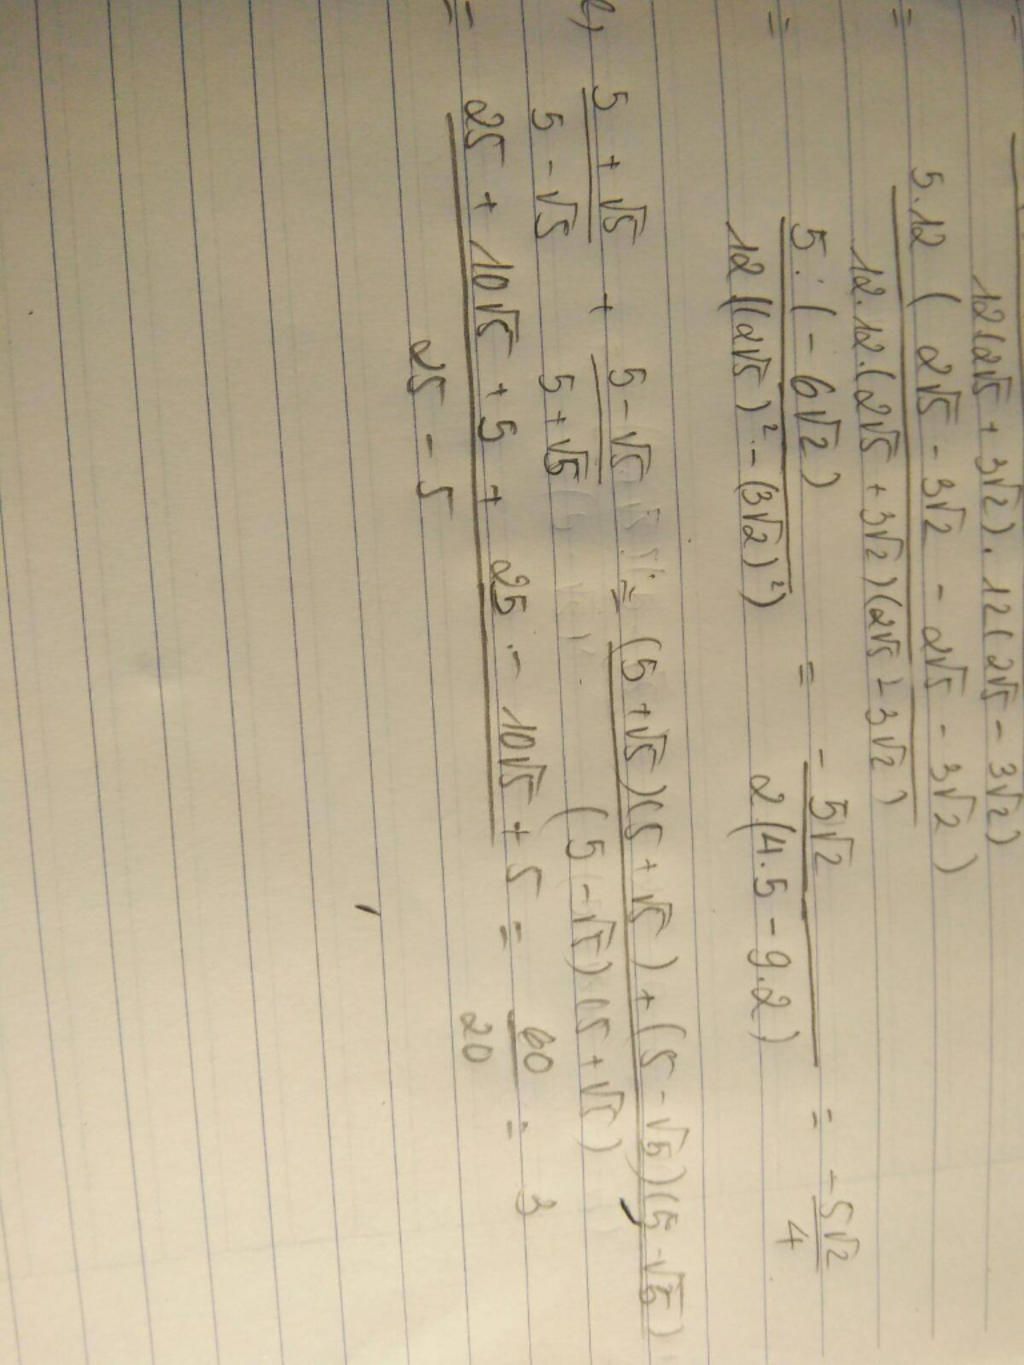 12(2√5 + 3√2) . 12(2√5 - 3√2)
= 5.12 ( 2√5 - 3√2 - 2√5 - 3√2 )
12.12.(2√5 + 3√2)(2√5 - 3√2)
= 5.(-6√2) = -5√2 = -5√2
12((2√5)² - (3√2)²) 2(4.5 - 9.2) 4
e, 5 + √5 + 5 - √5 = (5 + √5)(5 + √5) + (5 - √5)(5 - √5)
5 - √5 5 + √5 (5 - √5)(5 + √5)
= 25 + 10√5 + 5 + 25 - 10√5 + 5 = 60 = 3
25 - 5 20